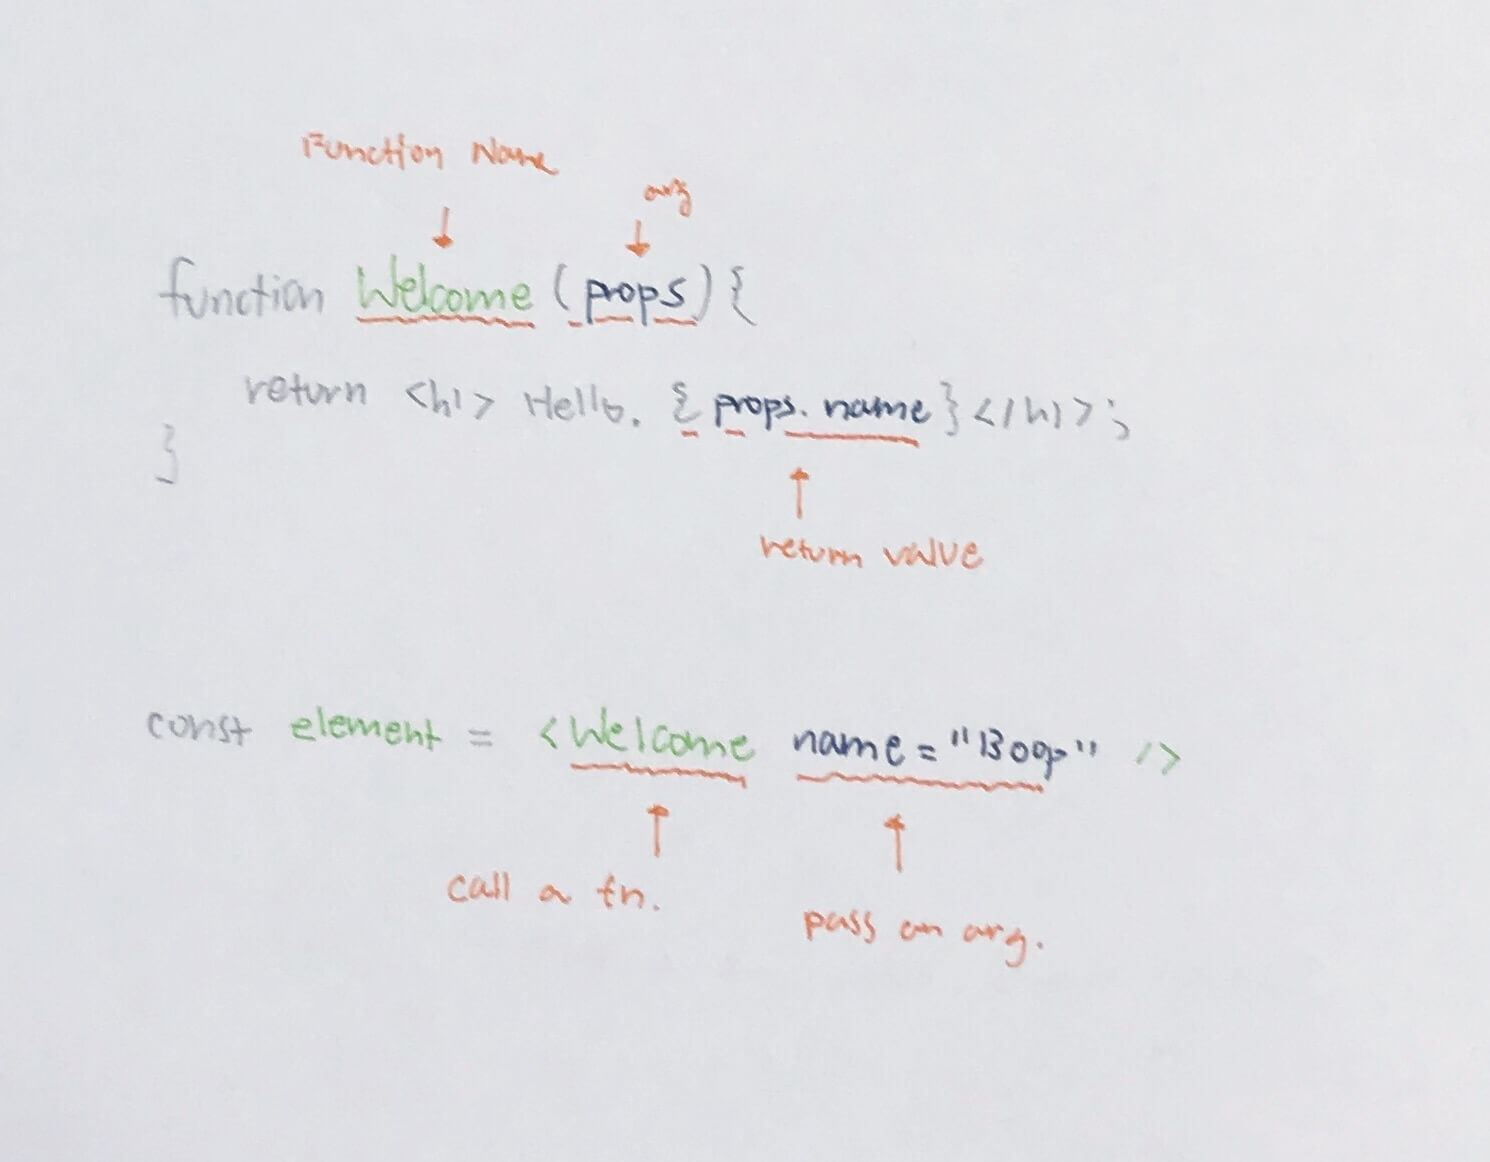 Function Name
arg
function Welcome (props) {
return <h1> Hello, {props.name}</h1>;
}
return value
const element = <Welcome name="Bog" />
call a fn.
pass an arg.